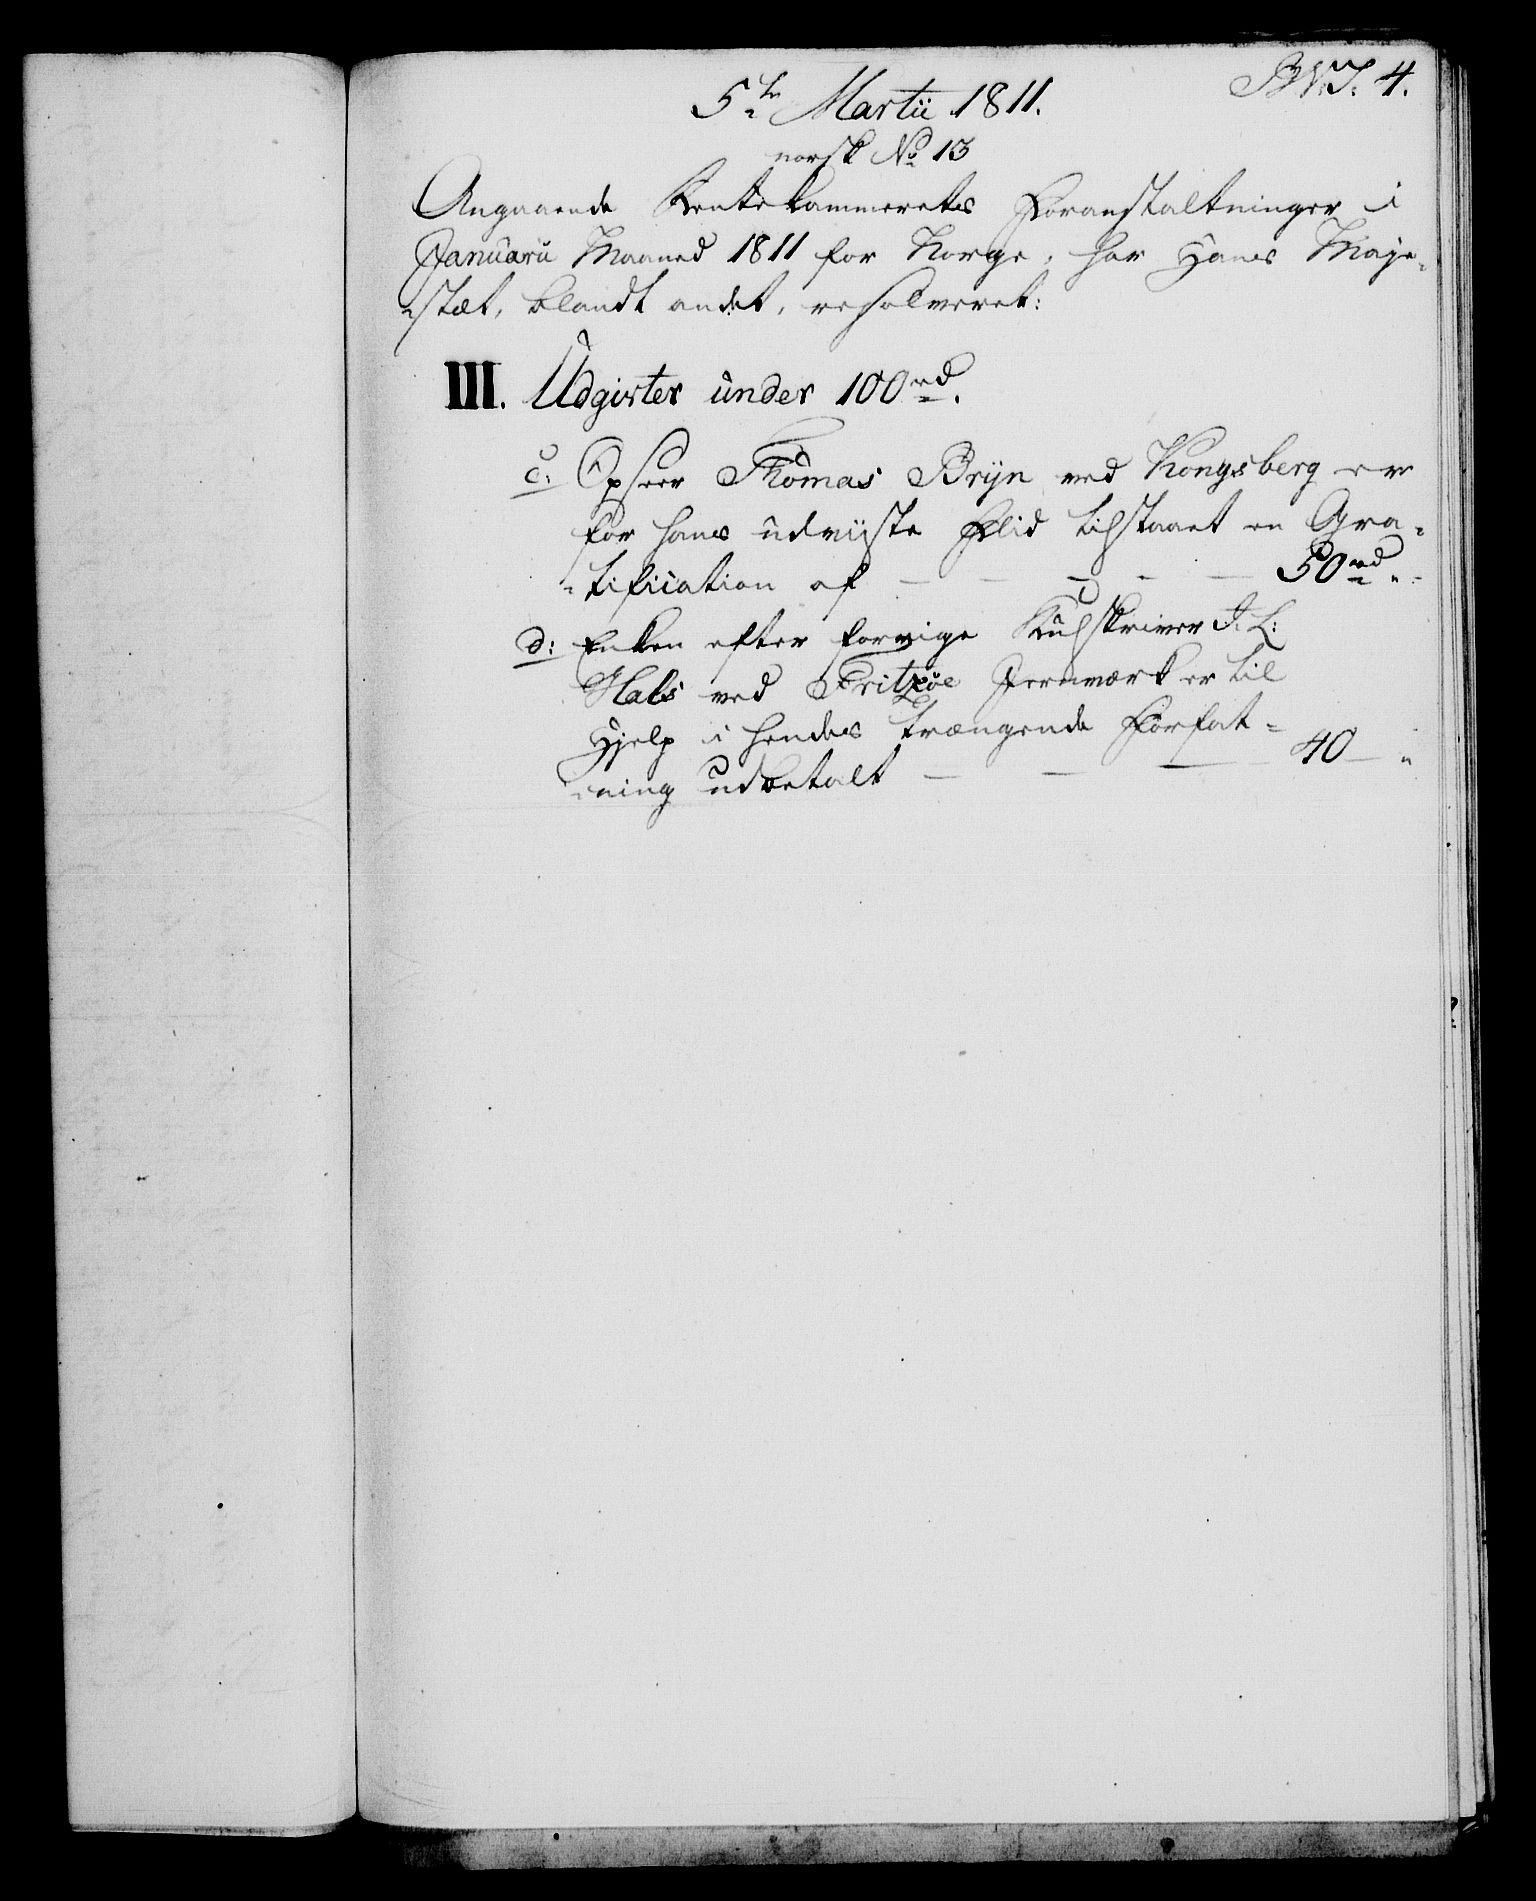 B.V.J. 4.
5te Martii 1811.
norsk No 13
Angaaende Rentekammerets Foranstaltninger i
Januarii Maaned 1811 for Norge, har Hans Maje-
-stæt, blandt andet, resolveret:
III. Udgivter under 100rd.
c. Opseer Thomas Bryn ved Kongsberg er
for hans udviiste Flid tilstaaet en Gra-
-tification af — — — — — 50rd "
d: Enken efter forrige Kulskriver J. L:
Hals ved Fritzøe Jernværk er til
Hjelp i hendes trængende Forfat-
-ning udbetalt — — — 40 — "